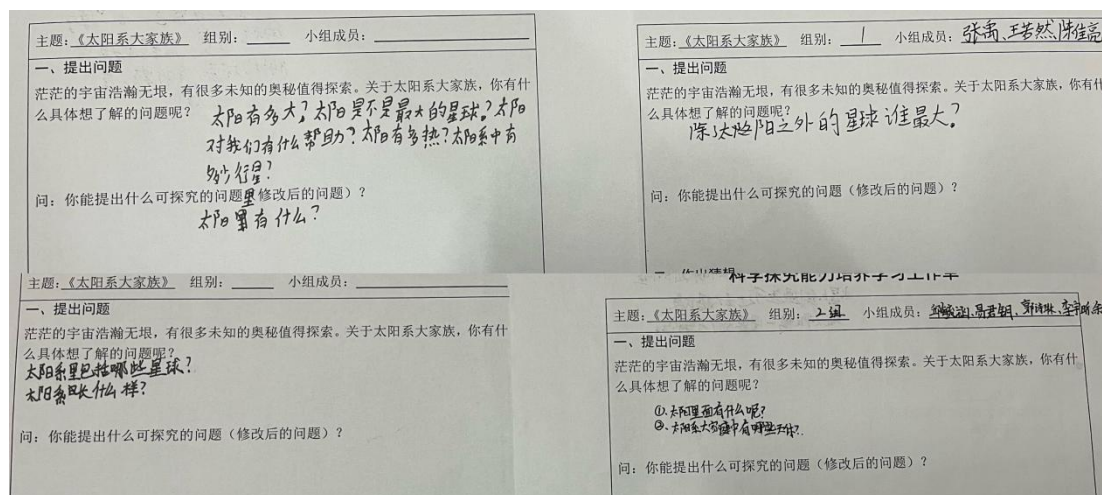 主题：《太阳系大家族》 组别： 小组成员：
一、提出问题
茫茫的宇宙浩瀚无垠，有很多未知的奥秘值得探索。关于太阳系大家族，你有什
么具体想了解的问题呢？ 太阳有多大？太阳是不是最大的星球？太阳
对我们有什么帮助？太阳有多热？太阳系中有
多少行星？
问：你能提出什么可探究的问题 修改后的问题）？
太阳里有什么？
主题：《太阳系大家族》 组别：1 小组成员：张禹、王若然、陈佳亮
一、提出问题
茫茫的宇宙浩瀚无垠，有很多未知的奥秘值得探索。关于太阳系大家族，你有什
么具体想了解的问题呢？
除了太阳之外的星球谁最大？
问：你能提出什么可探究的问题（修改后的问题）？
主题：《太阳系大家族》 组别： 小组成员：
一、提出问题
茫茫的宇宙浩瀚无垠，有很多未知的奥秘值得探索。关于太阳系大家族，你有什
么具体想了解的问题呢？
太阳系里包括哪些星球？
太阳系长什么样？
问：你能提出什么可探究的问题（修改后的问题）？
科学探究能力培养学习工作单
主题：《太阳系大家族》 组别：2组 小组成员：
一、提出问题
茫茫的宇宙浩瀚无垠，有很多未知的奥秘值得探索。关于太阳系大家族，你有什
么具体想了解的问题呢？
①.太阳里面有什么呢？
②.太阳系大家庭中有哪些天体？
问：你能提出什么可探究的问题（修改后的问题）？